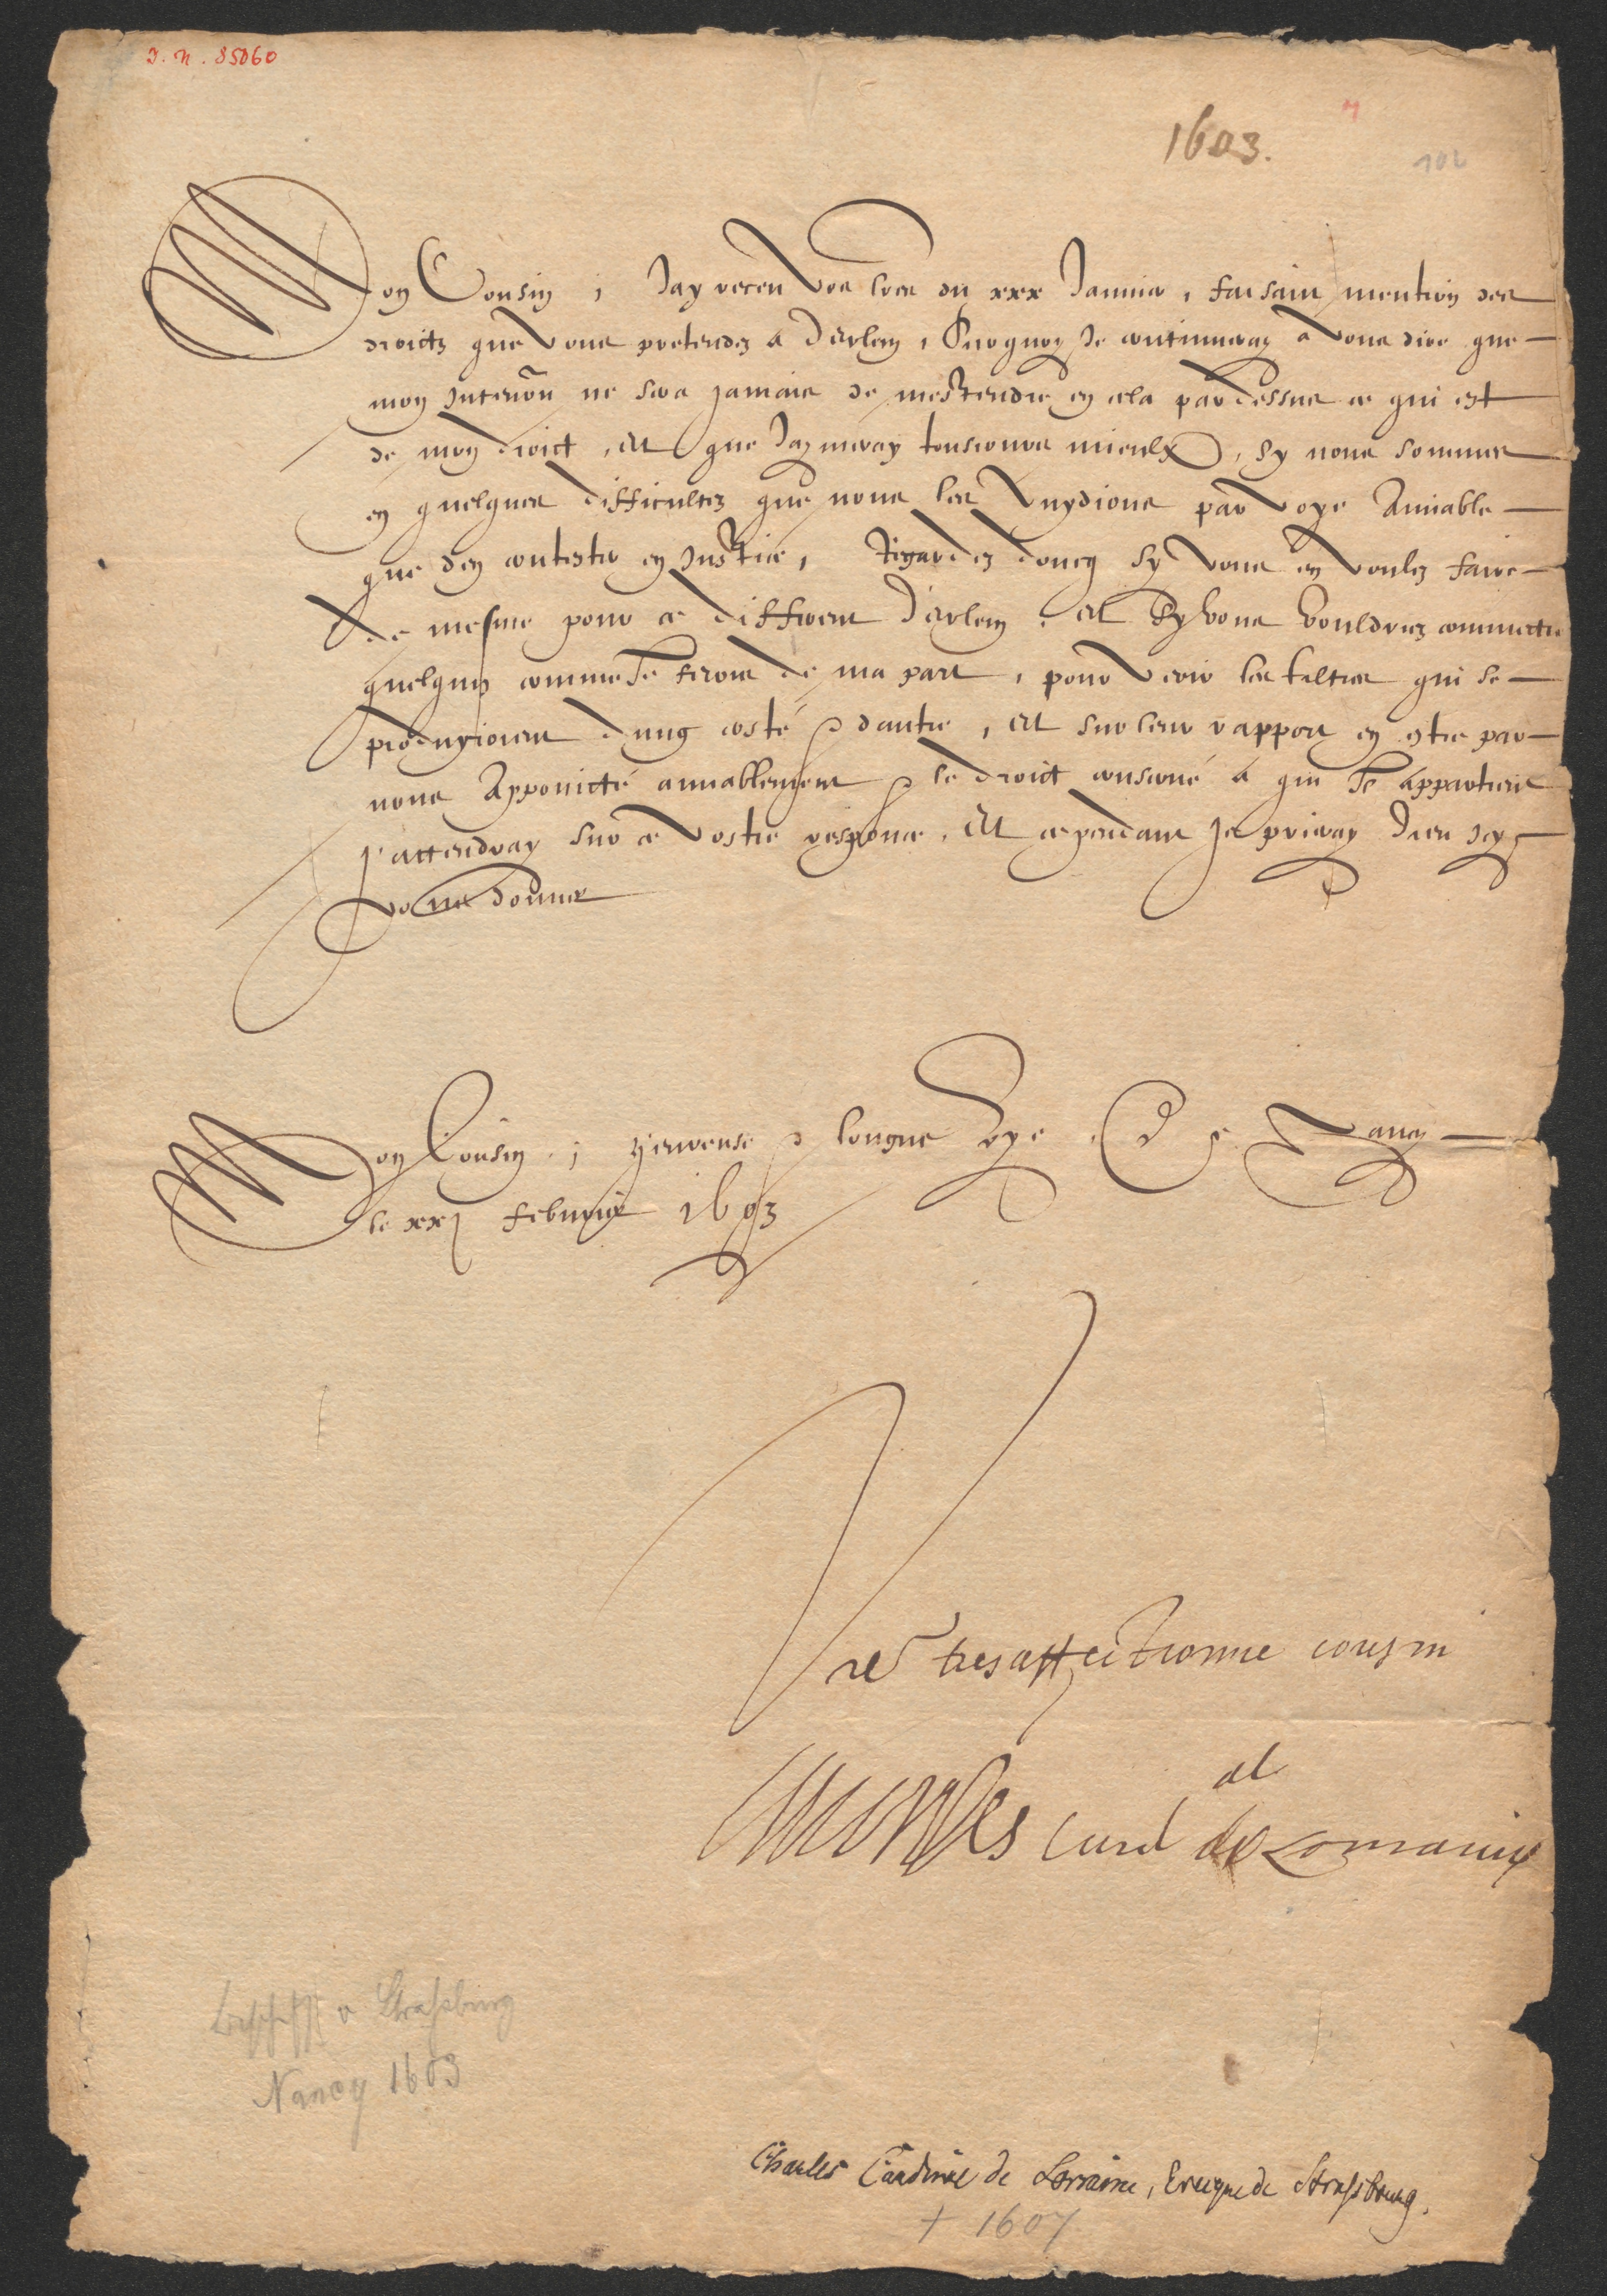 I. N. 85060
1603.
102
Mon Cousin, Jay receu voz lres du xxx Januier, faisant mention des
droictz que vous pretendez a Derlem, Surquoy Je continueray a vous dire que
mon intention ne sera jamais de m'estendre en cela par dessus ce qui est
de mon droict, Et que Jaymeray tousiours mieulx, sy nous sommes
en quelques difficultez que nous les vuydions par voye Amiable
que d'en contester en Justice, Regardez doncq sy vous en voulez faire
de mesme pour ce different d'erlem, et sy vous vouldriez commectre
quelqun comme Je ferois de ma part, pour veoir les tiltres qui se
produyroient dung costé & dautre, Et sur leur rapport en estre par
nous Appoincté amiablement & le droict conserué a qui Il appartient
J'attendray sur ce vostre responce, Et cependant Je prieray Dieu qu'il
vous donner
Mon Cousin, heureuse & longue vye. De Nancy
le xxj febvrier 1603
Vre tresaffectionne cousin
Charles Card al de Lorraine
Bischoff v Straßburg
Nancy 1603
Charles Cardinal de Lorraine, Eveque de Strasbourg.
† 1607